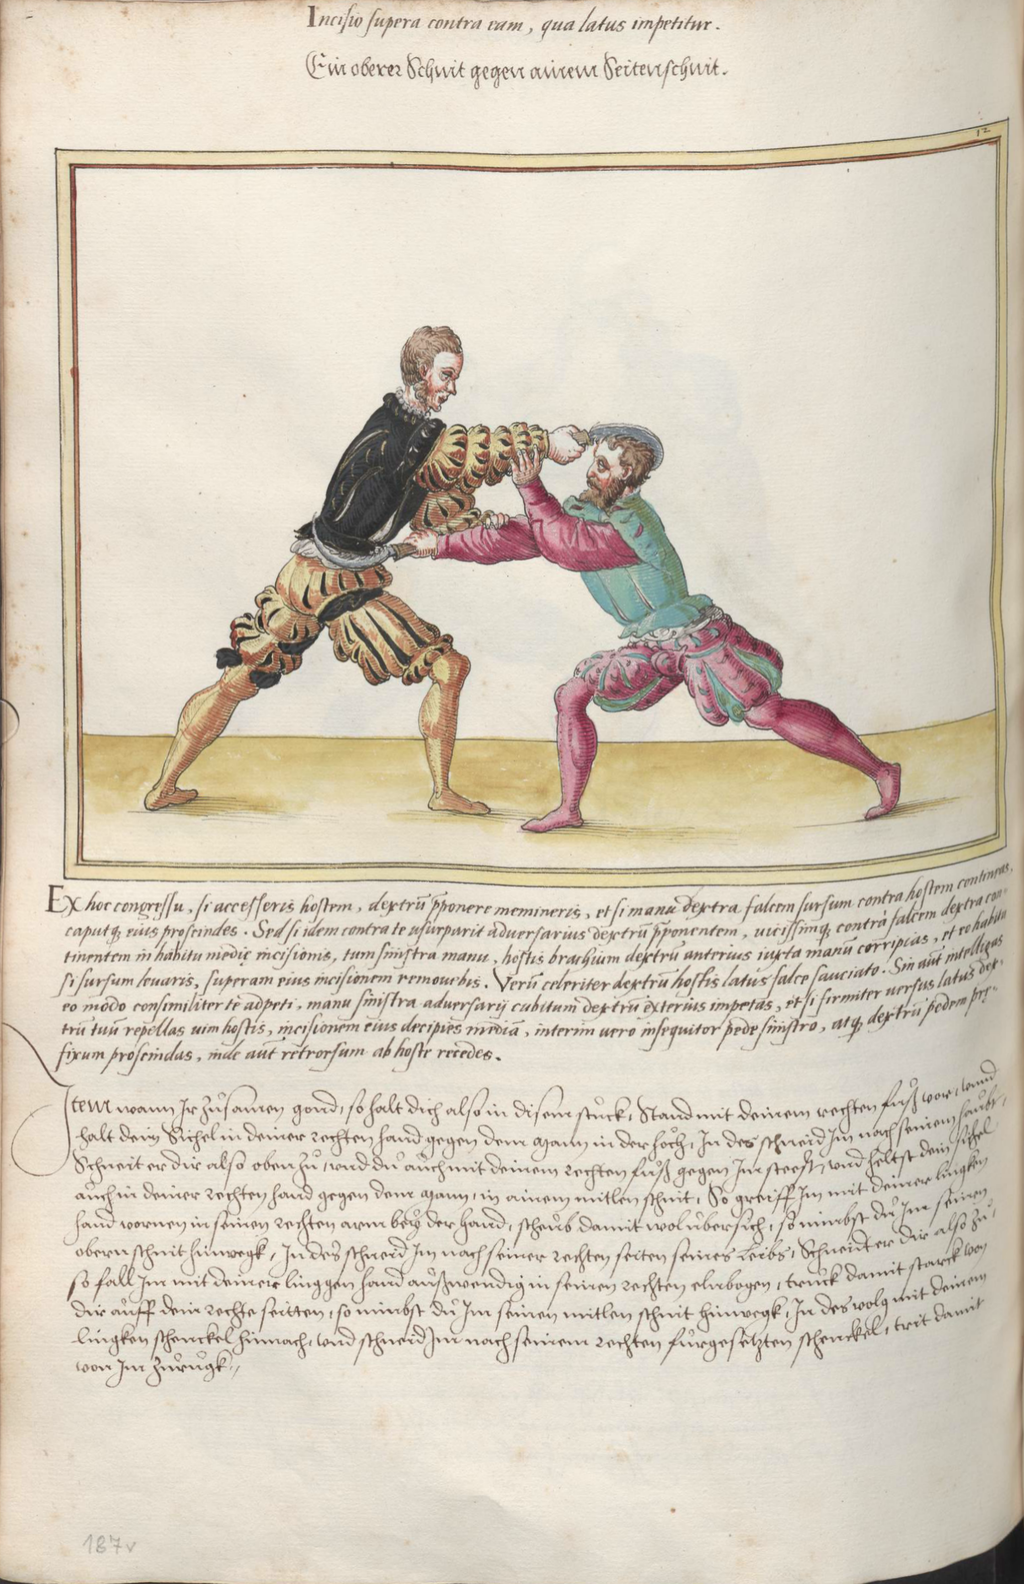 Incisio supera contra eam, qua latus impetitur.
Ein oberer Schnit gegen ainem Seitenschnit.
12
Ex hoc congressu, si accesseris hostem, dextrũ pponere memineris, et si manu dextra falcem sursum contra hostem contineas,
caputq eius proscindes. Sed si idem contra te usurparit adversarius dextrũ pponentem, vicissimq contra falcem dextra con-
tinentem in habitu mediæ incisionis, tum sinistra manu, hostis brachium dextrũ anterius iuxta manũ corripias, et eo habitu
si sursum levaris, superam eius incisionem removebis. Verũ celeriter dextrũ hostis latus falce sauciato. Sin aũt intelligas
eo modo consimiliter te adpeti, manu sinistra adversarij cubitum dextrũ exterius impetas, et si firmiter versus latus dex-
trũ tuũ repellas vim hostis, incisionem eius decipies mediã, interim vero insequitor pede sinistro, atq dextrũ pedem pre-
fixum proscindas, inde aũt retrorsum ab hoste recedes.
Item wann Ir zusamen gond, so halt dich also in disem stuck, Stand mit deinem rechten fuß vor, unnd
halt dein Sichel in deiner rechten hand gegen dem mann in der höch, In des schneid Im nach seinem haubt,
Schneit er dir also oben zu, und du auch mit deinem rechten fuß gegen Im steest, und heltst dein sichel
auch in deiner rechten hand gegen dem mann, in ainem mitlen schnit, So greiff Im mit deiner lingken
hand vornen in seinen rechten arm bey der hand, scheub damit wol ubersich, so nimbst du Im seinen
obern schnit hinwegk, In des schneid Im nach seiner rechten seiten seines Leibs, Schneidt er dir also zu,
so fall Im mit deiner linggen hand außwendig in seinen rechten elnbogen, truck damit starck von
dir auff dein rechte seitten, so nimbst du Im seinen mitlen schnit hinwegk, In des volg mit deinem
lingken schenckel hinnach, und schneid Im nach seinem rechten fürgesetzten schenckel, trit damit
von Im zurugk.
187v